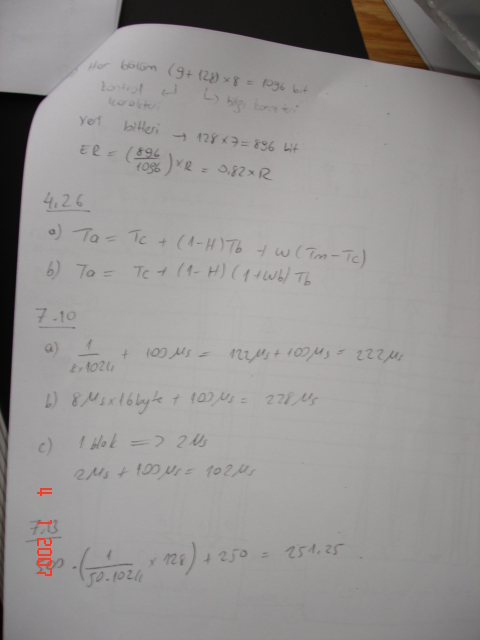 Her bölüm (9+128)×8 = 1096 bit
kontrol karakteri
↳ bilgi karakteri
veri bitleri → 128×7 = 896 bit
ER = (896/1096) × R = 0.82 × R
4.26
a) Ta = Tc + (1-H)Tb + w(Tm-Tc)
b) Ta = Tc + (1-H)(1+Wb)Tb
7.10
a) 1/8×1024 + 100 μs = 122 μs + 100 μs = 222 μs
b) 8 μs × 16 byte + 100 μs = 228 μs
c) 1 blok => 2 μs
2 μs + 100 μs = 102 μs
7.13
500 · (1/50·1024 × 128) + 250 = 251.25
4 1 2007